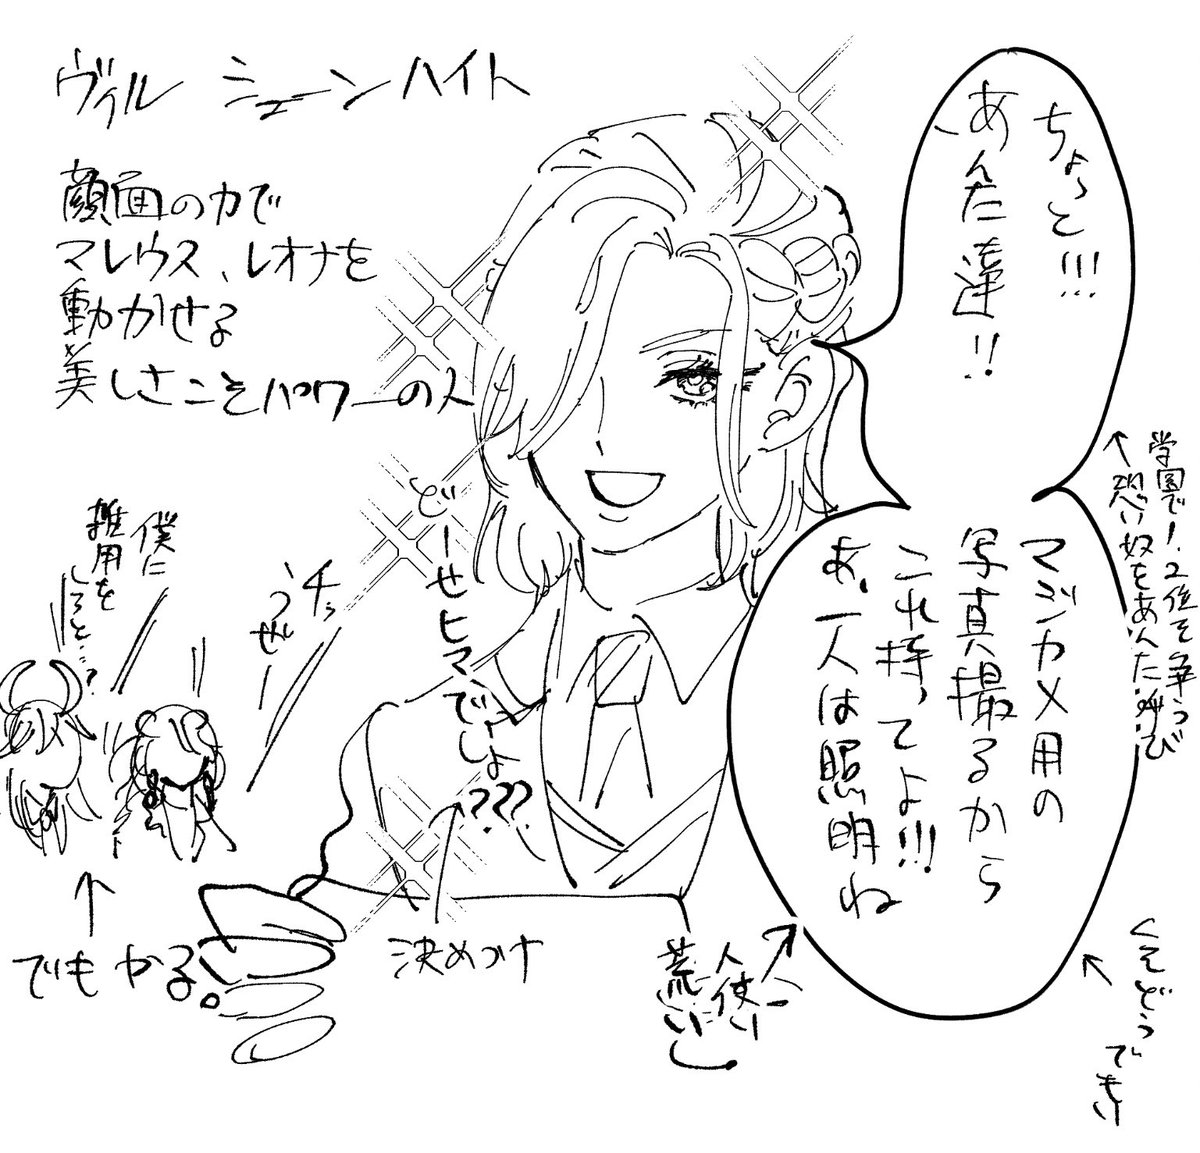 ヴィル シェーンハイト
顔面の力で
マレウス、レオナを
動かせる
美しさこそパワーの人
ちょっと!!!
あんた達!!
学園で1.2位を争う
恐い奴をあんた呼び
マジカメ用の
写真撮るから
これ持っててよ!!!
あ、一人は照明ね
くそどうでもいい
人使い
荒い
どーせヒマでしょ???
決めつけ
チッ
うぜー
僕に
雑用を
しろと…?
でもやる。